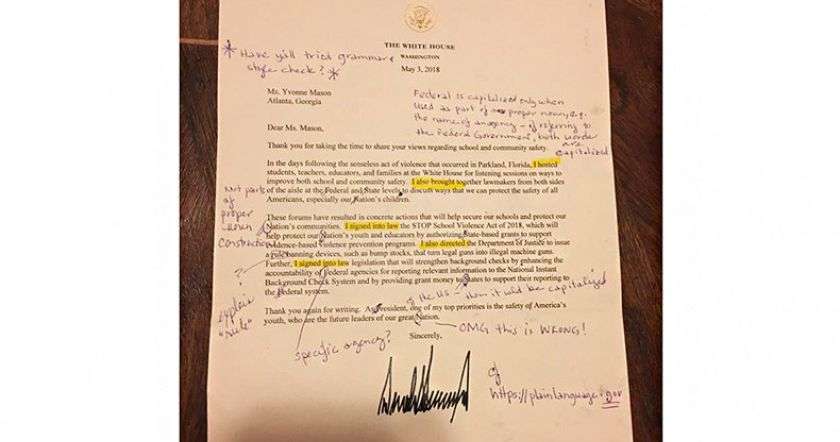 THE WHITE HOUSE
WASHINGTON
* Have y'all tried grammar &
style check? *
May 3, 2018
Ms. Yvonne Mason
Atlanta, Georgia
Federal is capitalized only when
used as part of a proper noun, e.g.
the name of an agency - if referring to
the Federal Government, both words
are
capitalized
Dear Ms. Mason,
Thank you for taking the time to share your views regarding school and community safety.
In the days following the senseless act of violence that occurred in Parkland, Florida, I hosted
students, teachers, educators, and families at the White House for listening sessions on ways to
improve both school and community safety. I also brought together lawmakers from both sides
of the aisle at the Federal and State levels to discuss ways that we can protect the safety of all
Americans, especially our Nation's children.
Not part
of
proper
noun
construction
These forums have resulted in concrete actions that will help secure our schools and protect our
Nation's communities. I signed into law the STOP School Violence Act of 2018, which will
help protect our Nation's youth and educators by authorizing State-based grants to support
evidence-based violence prevention programs. I also directed the Department of Justice to issue
a rule banning devices, such as bump stocks, that turn legal guns into illegal machine guns.
Further, I signed into law legislation that will strengthen background checks by enhancing the
accountability of Federal agencies for reporting relevant information to the National Instant
Background Check System and by providing grant money to States to support their reporting to
the Federal system.
?
explain
"rule"
of the US - then it wld be capitalized
Thank you again for writing. As President, one of my top priorities is the safety of America's
youth, who are the future leaders of our great Nation.
OMG this is WRONG!
Sincerely,
specific agency?
https://plainlanguage.gov